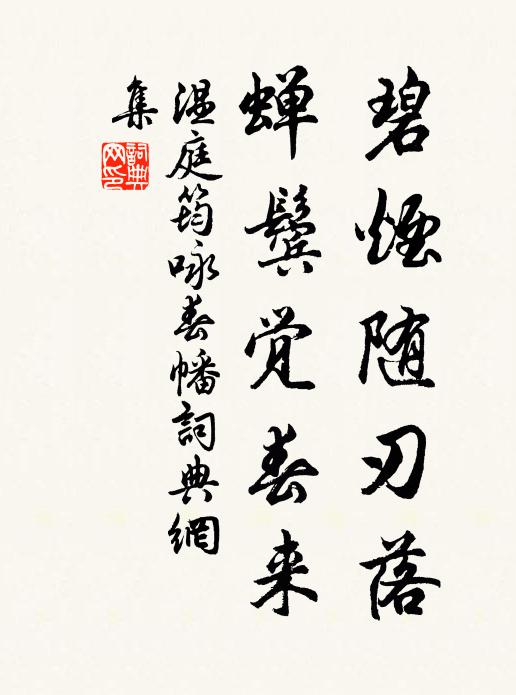 碧煙随刃落
蝉鬓觉春来
温庭筠咏春幡詞典網
集
詞典
网印